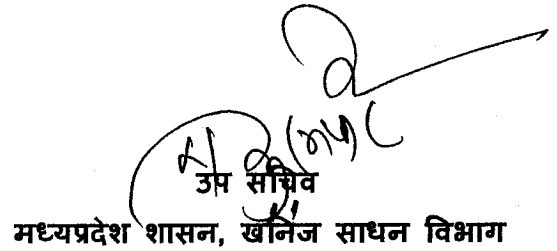 उप सचिव
मध्यप्रदेश शासन, खनिज साधन विभाग